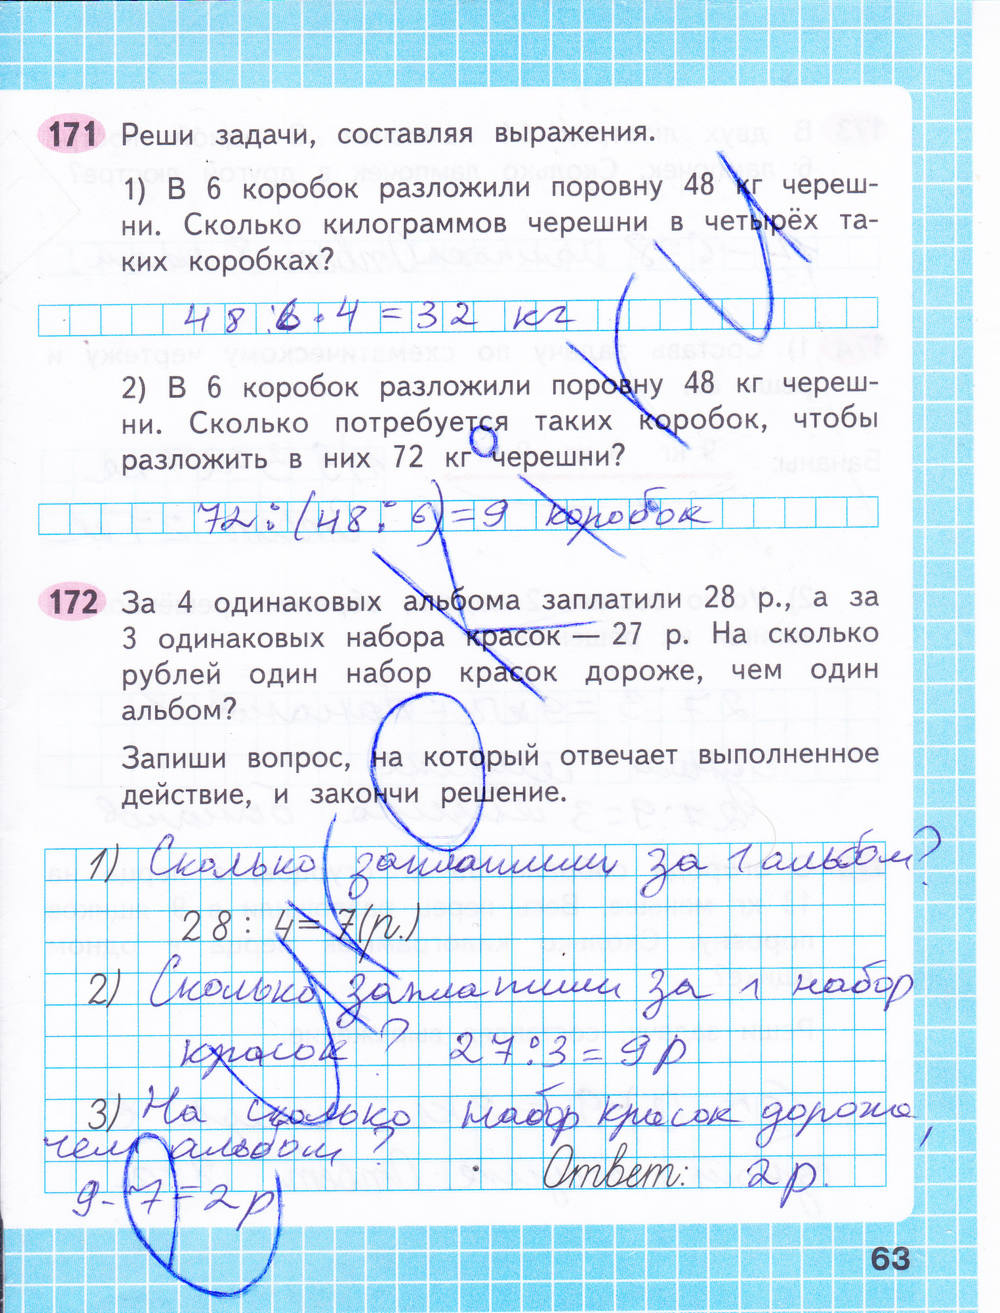 171 Реши задачи, составляя выражения.
1) В 6 коробок разложили поровну 48 кг череш-
ни. Сколько килограммов черешни в четырёх та-
ких коробках?
48 : 6 · 4 = 32 кг
2) В 6 коробок разложили поровну 48 кг череш-
ни. Сколько потребуется таких коробок, чтобы
разложить в них 72 кг черешни?
72 : (48 : 6) = 9 коробок
172 За 4 одинаковых альбома заплатили 28 р., а за
3 одинаковых набора красок – 27 р. На сколько
рублей один набор красок дороже, чем один
альбом?
Запиши вопрос, на который отвечает выполненное
действие, и закончи решение.
1) Сколько заплатили за 1 альбом?
28 : 4 = 7 (р.)
2) Сколько заплатили за 1 набор
красок? 27 : 3 = 9 р
3) На сколько набор красок дороже,
чем альбом?
Ответ: 2 р.
9 - 7 = 2 р
63